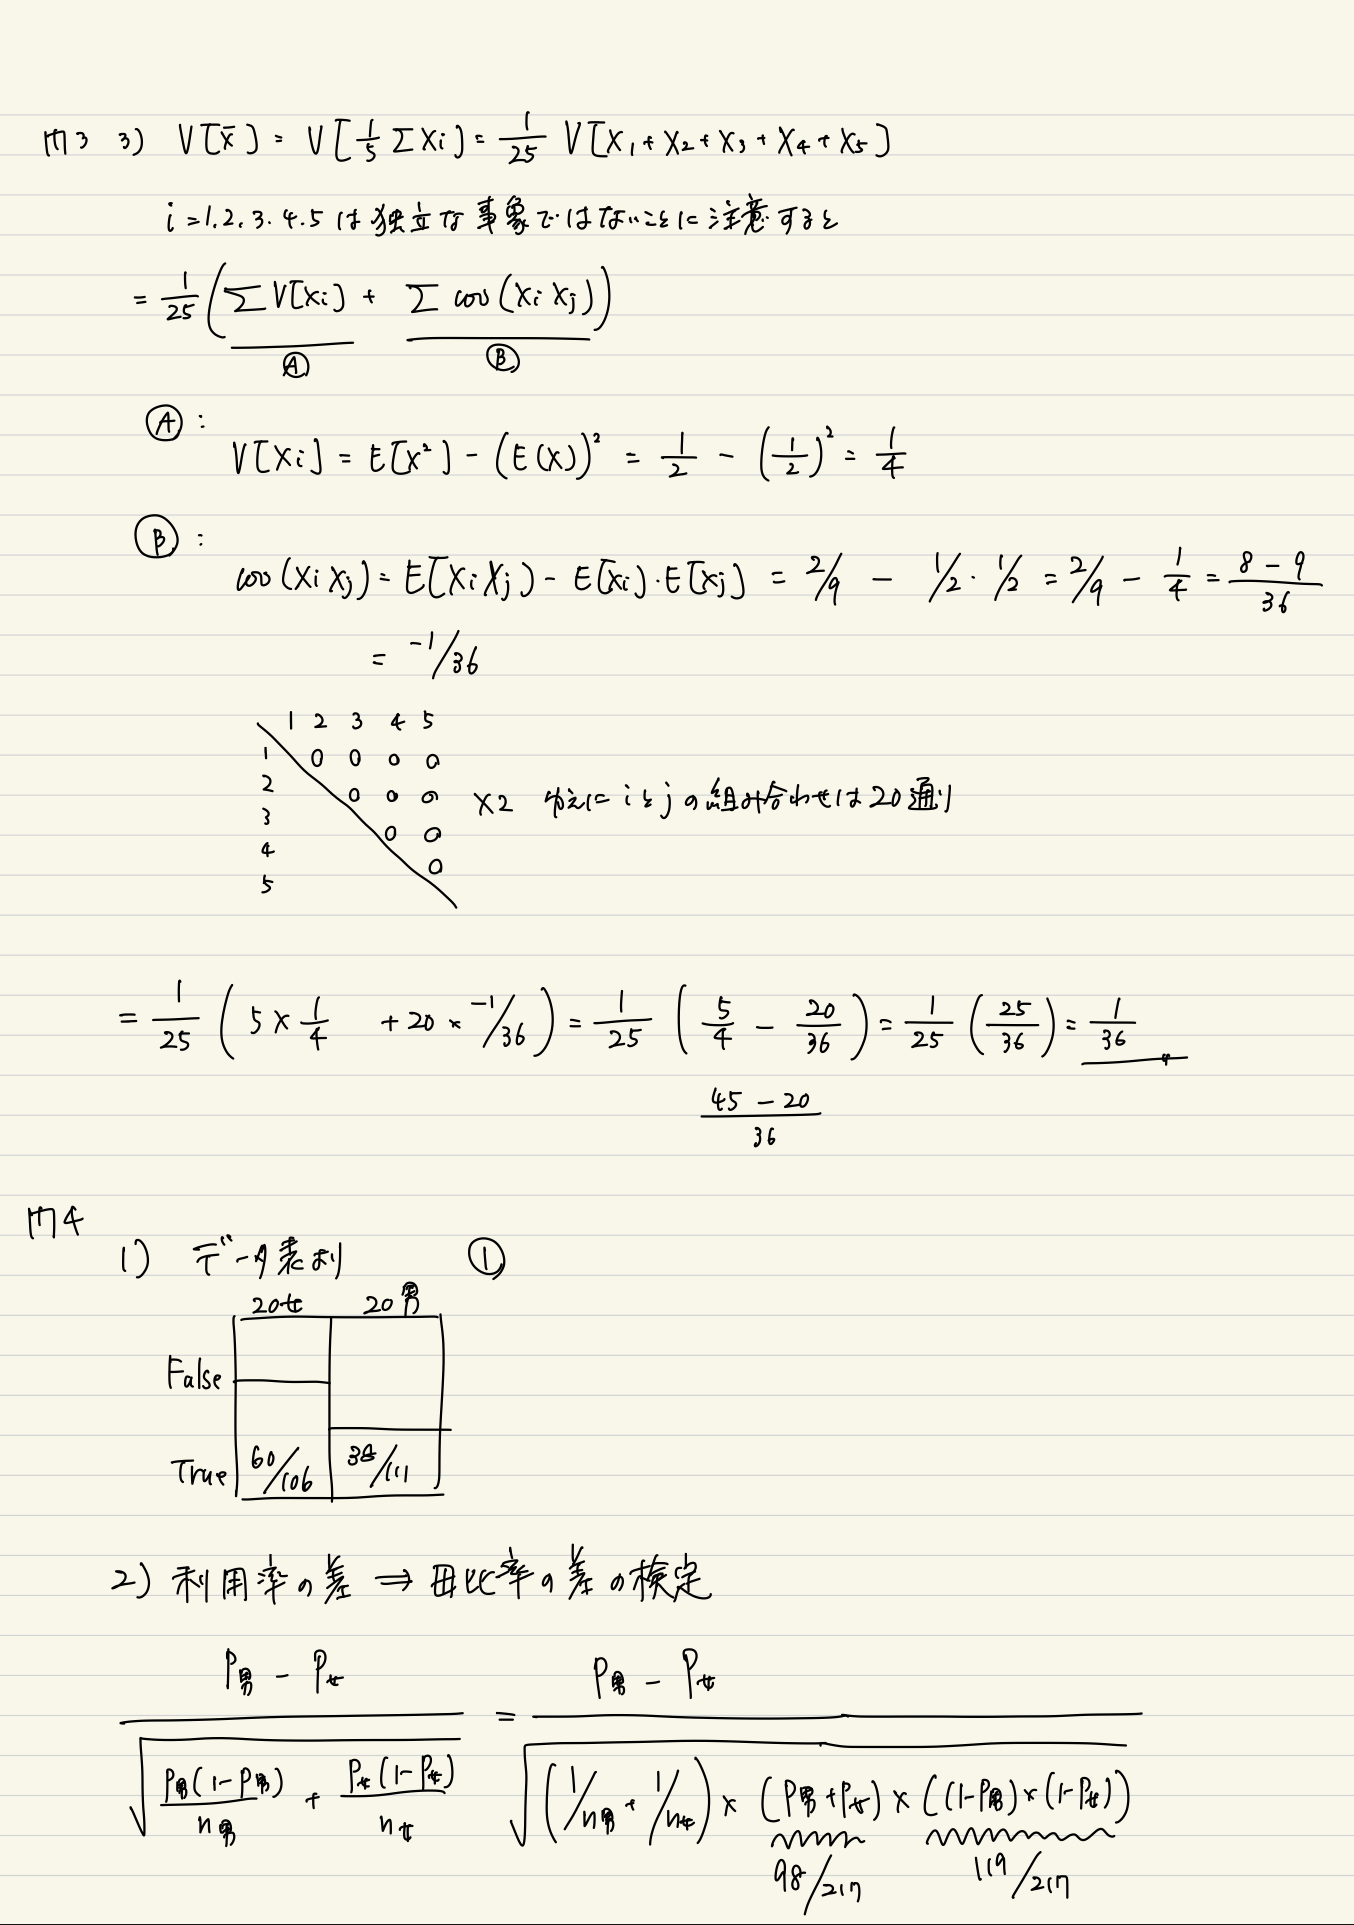 問3 3) V[x̄] = V[1/5 ΣXi] = 1/25 V[X₁+X₂+X₃+X₄+X₅]
i=1.2.3.4.5は独立な事象ではないことに注意すると
= 1/25 (ΣV[Xi] + Σcov(XiXj))
Ⓐ Ⓑ
Ⓐ:
V[Xi] = E[X²] - (E(X))² = 1/2 - (1/2)² = 1/4
Ⓑ:
cov(XiXj) = E[XiXj] - E[Xi]・E[Xj] = 2/9 - 1/2・1/2 = 2/9 - 1/4 = 8-9/36
= -1/36
1 2 3 4 5
1 0 0 0 0
2 0 0 0
3 0 0
4 0
5
×2 ゆえにiとjの組み合わせは20通り
= 1/25 (5×1/4 +20×-1/36) = 1/25 (5/4 - 20/36) = 1/25 (25/36) = 1/36
45-20/36
問4
1) データ表より ①
20女 20男
False
True 60/106 38/111
2) 利用率の差 ⇒ 母比率の差の検定
P男 - P女 / √(P男(1-P男)/n男 + P女(1-P女)/n女) = P男 - P女 / √((1/n男 + 1/n女) × (P男+P女) × ((1-P男)×(1-P女)))
98/217 119/217